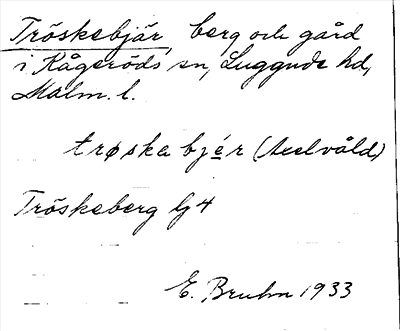 Tröskebjär, berg och gård
i Kågeröds sn, Luggude hd,
Malm. l.
trøska bjér (Axelvåld)
Tröskeberg Gg 4
E. Bruhn 1933